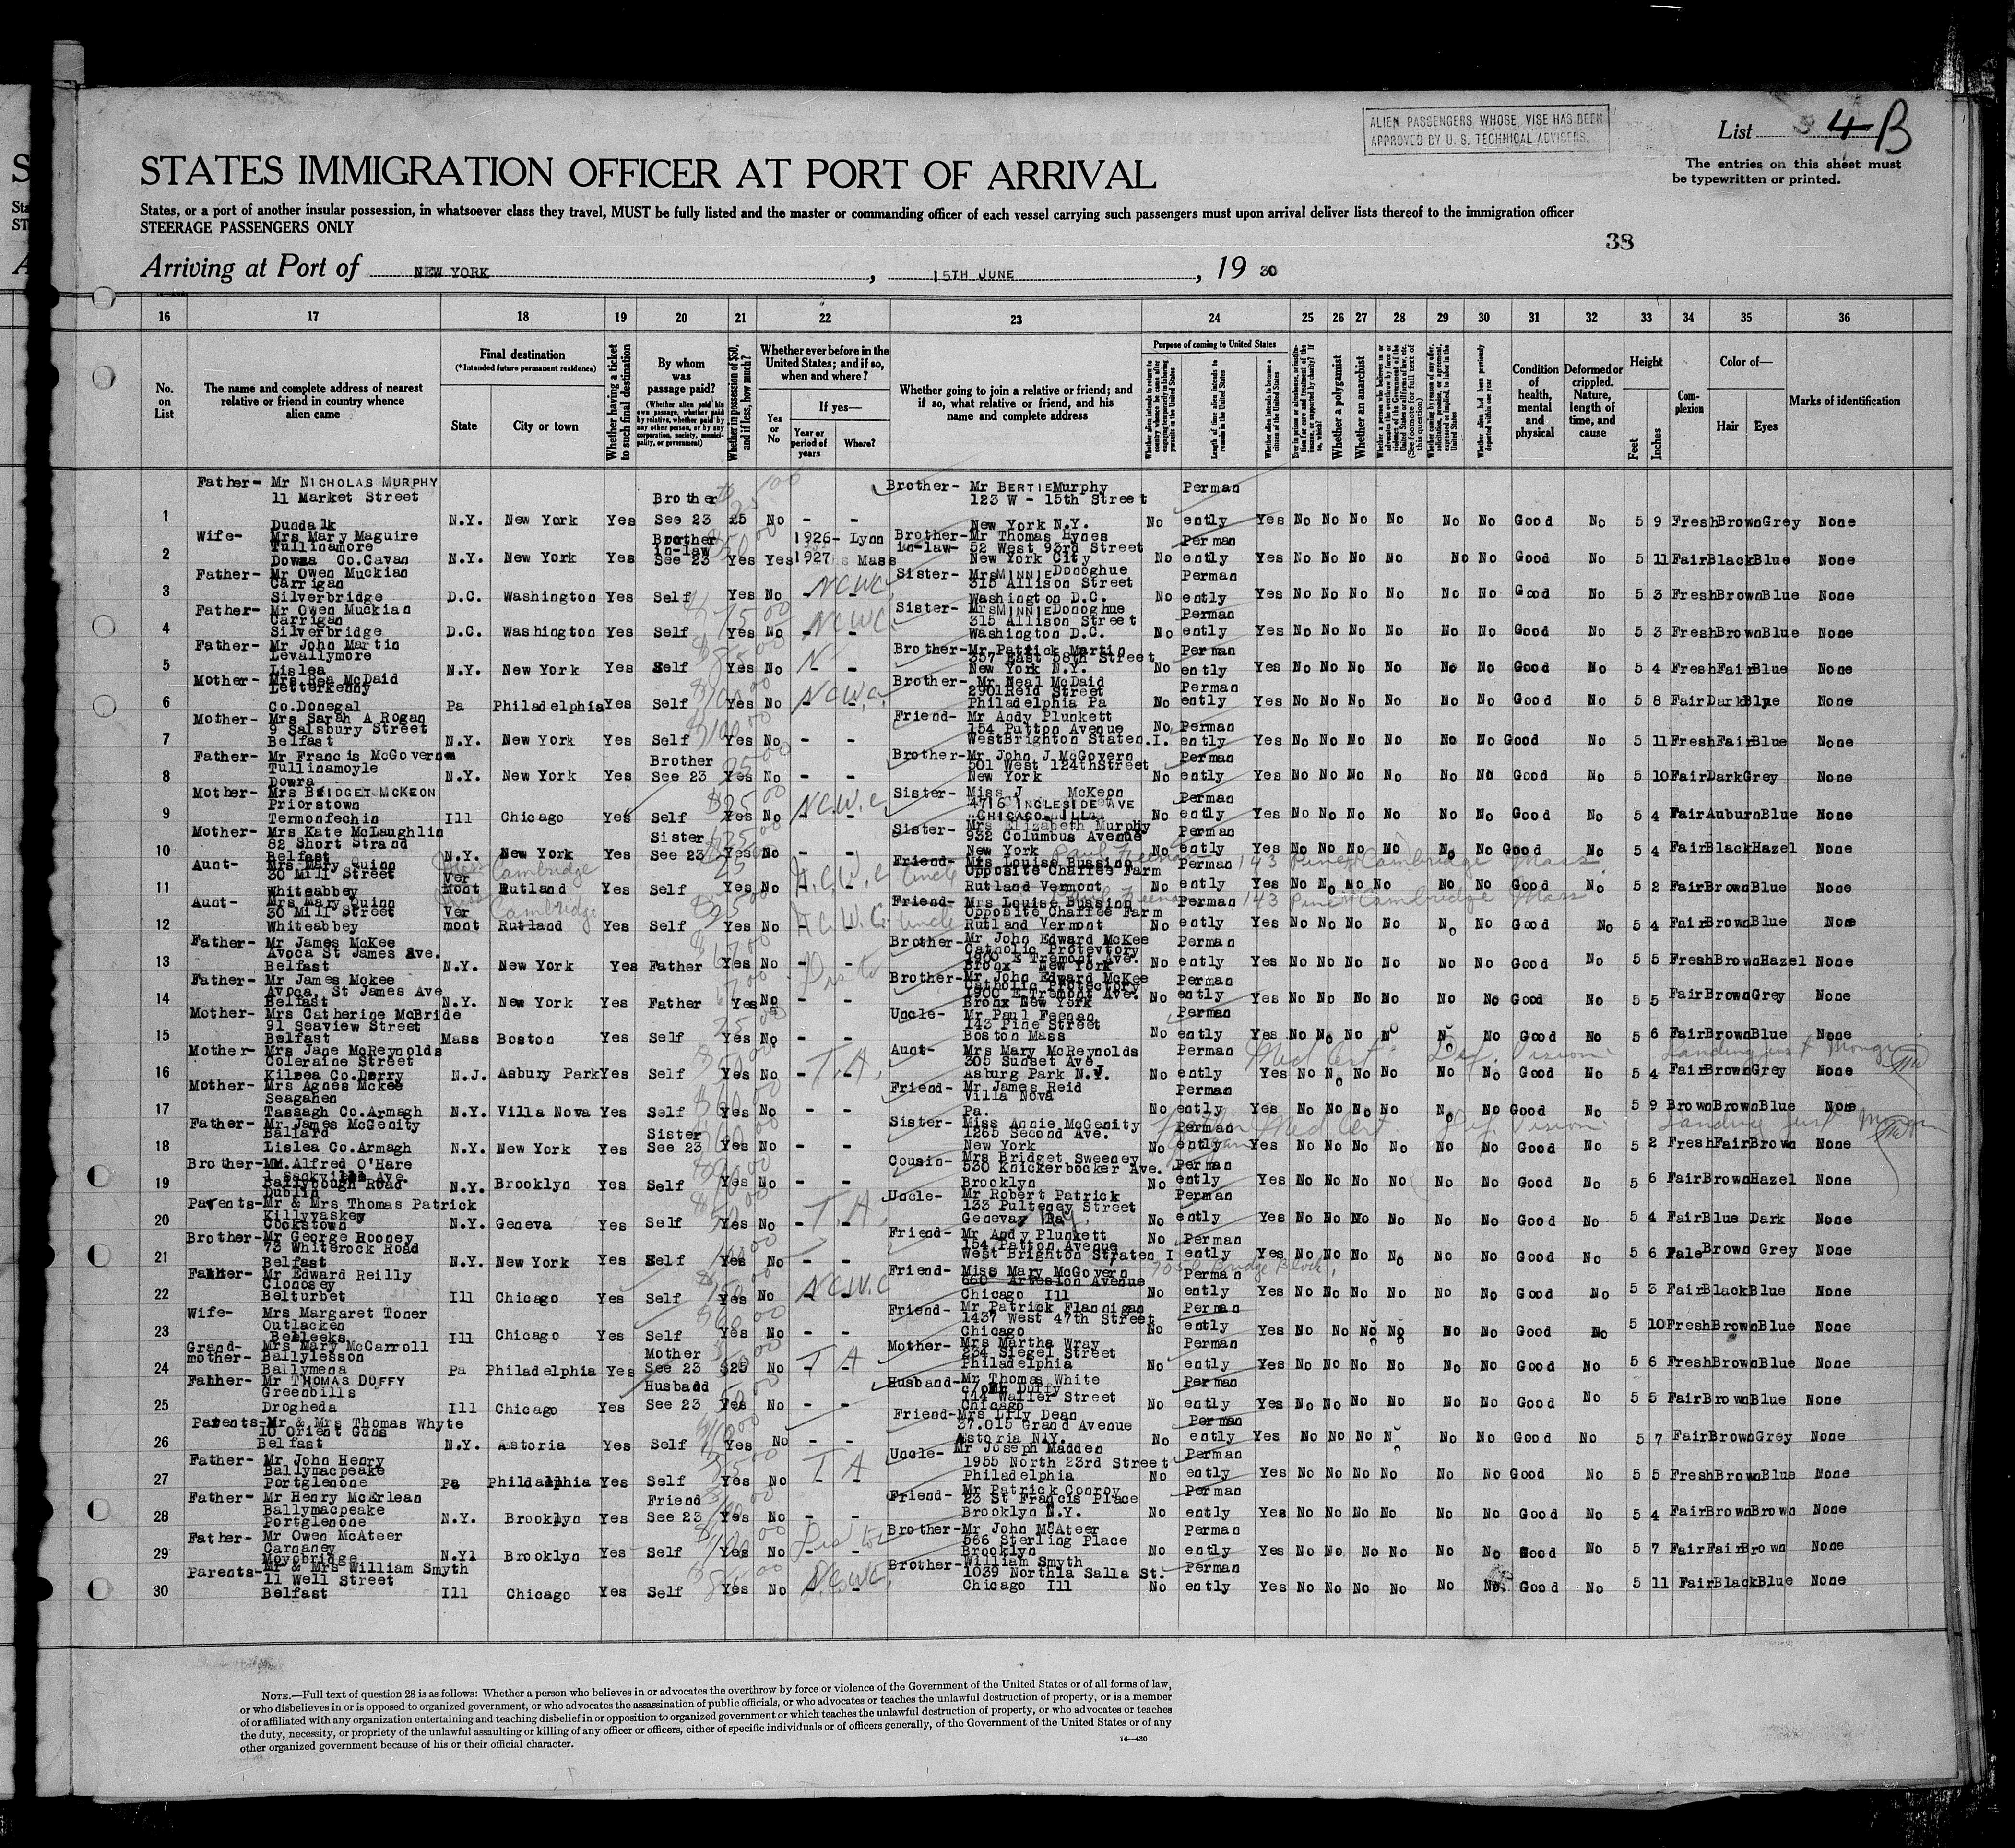 ALIEN PASSENGERS WHOSE VISE HAS BEEN
APPROVED BY U. S. TECHNICAL ADVISERS.
List 4 B
The entries on this sheet must
be typewritten or printed.
STATES IMMIGRATION OFFICER AT PORT OF ARRIVAL
States, or a port of another insular possession, in whatsoever class they travel, MUST be fully listed and the master or commanding officer of each vessel carrying such passengers must upon arrival deliver lists thereof to the immigration officer
STEERAGE PASSENGERS ONLY
38
Arriving at Port of NEW YORK, 15TH JUNE, 19 30
16 17 18 19 20 21 22 23 24 25 26 27 28 29 30 31 32 33 34 35 36
No. on List
The name and complete address of nearest relative or friend in country whence alien came
Final destination
(*Intended future permanent residence)
State
City or town
Whether having a ticket to such final destination
By whom was passage paid?
(Whether alien paid his own passage, whether paid by relative, whether paid by any other person, or by any corporation, society, municipality, or government)
Whether in possession of $50, and if less, how much?
Whether ever before in the United States; and if so, when and where?
Yes or No
If yes—
Year or period of years
Where?
Whether going to join a relative or friend; and if so, what relative or friend, and his name and complete address
Purpose of coming to United States
Length of time alien intends to remain in the United States
Whether alien intends to become a citizen of the United States
Whether a polygamist
Whether an anarchist
Condition of health, mental and physical
Deformed or crippled. Nature, length of time, and cause
Height
Feet
Inches
Complexion
Color of—
Hair
Eyes
Marks of identification
1 Father- Mr NICHOLAS MURPHY 11 Market Street Dundalk N.Y. New York Yes Brother See 23 25 No - - Brother- Mr BERTIE Murphy 123 W - 15th Street New York N.Y. No Permanently Yes No No No No No No Good No 5 9 Fresh Brown Grey None
2 Wife- Mrs Mary Maguire Tullinamore Dowra Co.Cavan N.Y. New York Yes Brother in-law See 23 Yes Yes 1926- 1927 Lynn Mass Brother-in-law- Mr Thomas Hynes 52 West 93rd Street New York City No Permanently Yes No No No No No No Good No 5 11 Fair Black Blue None
3 Father- Mr Owen Muckian Carrigan Silverbridge D.C. Washington Yes Self Yes No NCWC Sister- Mrs MINNIE Donoghue 315 Allison Street Washington D.C. No Permanently Yes No No No No No No Good No 5 3 Fresh Brown Blue None
4 Father- Mr Owen Muckian Carrigan Silverbridge D.C. Washington Yes Self Yes No NCWC Sister- Mrs MINNIE Donoghue 315 Allison Street Washington D.C. No Permanently Yes No No No No No No Good No 5 3 Fresh Brown Blue None
5 Father- Mr John Martin Levallymore Lislea N.Y. New York Yes Self Yes No - - Brother- Mr Patrick Martin 357 East 58th Street New York N.Y. No Permanently Yes No No No No No No Good No 5 4 Fresh Fair Blue None
6 Mother- Mrs Rea McDaid Letterkenny Co.Donegal Pa Philadelphia Yes Self Yes No N.C.W.C. Brother- Mr Neal McDaid 2901 Reid Street Philadelphia Pa No Permanently Yes No No No No No No Good No 5 8 Fair Dark Blue None
7 Mother- Mrs Sarah A Rogan 9 Salsbury Street Belfast N.Y. New York Yes Self Yes No - - Friend- Mr Andy Plunkett 154 Putton Avenue West Brighton Staten.I. No Permanently Yes No No No No No No Good No 5 11 Fresh Fair Blue None
8 Father- Mr Francis McGovern Tullinamoyle Dowra N.Y. New York Yes Brother See 23 Yes No - - Brother- Mr John J McGovern 501 West 124th Street New York No Permanently Yes No No No No No No Good No 5 10 Fair Dark Grey None
9 Mother- Mrs BRIDGET MCKEON Priorstown Termonfechin Ill Chicago Yes Self Yes No N.C.W.C. Sister- Miss J McKeon 4716 INGLESIDE AVE CHICAGO ILL No Permanently Yes No No No No No No Good No 5 4 Fair Auburn Blue None
10 Mother- Mrs Kate McLaughlin 82 Short Strand Belfast N.Y. New York Yes Sister See 23 Yes No - - Sister- Mrs Elizabeth Murphy 932 Columbus Avenue New York No Permanently Yes No No No No No No Good No 5 4 Fair Black Hazel None
11 Aunt- Mrs Mary Quinn 30 Mill Street Whiteabbey Vermont Rutland Cambridge Yes Self Yes No N.C.W.C. Friend- Uncle Mrs Louise Bussino Opposite Chaffee Farm Rutland Vermont 143 Pine Cambridge Mass No Permanently Yes No No No No No No Good No 5 2 Fair Brown Blue None
12 Aunt- Mrs Mary Quinn 30 Mill Street Whiteabbey Vermont Rutland Cambridge Yes Self Yes No N.C.W.C. Friend- Uncle Mrs Louise Bussion Opposite Chaffee Farm Rutland Vermont 143 Pine Cambridge Mass No Permanently Yes No No No No No No Good No 5 4 Fair Brown Blue None
13 Father- Mr James McKee Avoca St James Ave. Belfast N.Y. New York Yes Father Yes No - - Brother- Mr John Edward McKee Catholic Protevtory 1900 E Tremont Ave. Bronx New York No Permanently Yes No No No No No No Good No 5 5 Fresh Brown Hazel None
14 Father- Mr James Mckee Avoca, St James Ave Belfast N.Y. New York Yes Father Yes No - - Brother- Mr John Edward McKee Catholic Protectory 1900 E Tremont Ave. Bronx New York No Permanently Yes No No No No No No Good No 5 5 Fair Brown Grey None
15 Mother- Mrs Catherine McBride 91 Seaview Street Belfast Mass Boston Yes Self Yes No - - Uncle- Mr Paul Feenan 143 Pine Street Boston Mass No Permanently Yes No No No No No No Good No 5 6 Fair Brown Blue None
16 Mother- Mrs Jane McReynolds Coleraine Street Kilrea Co.Derry N.J. Asbury Park Yes Self Yes No T.A. Aunt- Mrs Mary McReynolds 305 Sunset Ave Asburg Park N.J. No Permanently Yes No No No No No No Good No 5 4 Fair Brown Grey None
Med Cert. Def. Vision
17 Mother- Mrs Agnes Mckee Seagahen Tassagh Co.Armagh N.Y. Villa Nova Yes Self Yes No - - Friend- Mr James Reid Villa Nova Pa. No Permanently Yes No No No No No No Good No 5 9 Brown Brown Blue None
18 Father- Mr James McGenity Ballard Lislea Co.Armagh N.Y. New York Yes Sister See 23 Yes No - - Sister- Miss Annie McGenity 1265 Second Ave. New York No Permanently Yes No No No No No No Good No 5 2 Fresh Fair Brown None
Med Cert. Def. Vision
19 Brother- Mr.Alfred O'Hare 1 Sackville Ave. Ballybough Road Dublin N.Y. Brooklyn Yes Self Yes No - - Cousin- Mrs Bridget Sweeney 530 Knickerbocker Ave. Brooklyn No Permanently Yes No No No No No No Good No 5 6 Fair Brown Hazel None
20 Parents- Mr & Mrs Thomas Patrick Killyvaskey Cookstown N.Y. Geneva Yes Self Yes No T.A. Uncle- Mr Robert Patrick 133 Pulteney Street Geneva N.Y. No Permanently Yes No No No No No No Good No 5 4 Fair Blue Dark None
21 Brother- Mr George Rooney 73 Whiterock Road Belfast N.Y. New York Yes Self Yes No - - Friend- Mr Andy Plunkett 154 Patton Avenue West Brighton Straten I No Permanently Yes No No No No No No Good No 5 6 Pale Brown Grey None
22 Father- Mr Edward Reilly Clonosey Belturbet Ill Chicago Yes Self Yes No N.C.W.C Friend- Miss Mary McGovern 660 Artesion Avenue Chicago Ill No Permanently Yes No No No No No No Good No 5 3 Fair Black Blue None
23 Wife- Mrs Margaret Toner Outlacken Belleeks Ill Chicago Yes Self Yes No - - Friend- Mr Patrick Flannigan 1437 West 47th Street Chicago No Permanently Yes No No No No No No Good No 5 10 Fresh Brown Blue None
24 Grand-mother- Mrs Mary McCarroll Ballylesson Ballymena Pa Philadelphia Yes Mother See 23 $25 No T A Mother- Mrs Martha Wray 234 Siegel Street Philadelphia No Permanently Yes No No No No No No Good No 5 6 Fresh Brown Blue None
25 Father- Mr THOMAS DUFFY Greenbills Drogheda Ill Chicago Yes Husband See 23 Yes No - - Husband- Mr Thomas White c/o Mr Duffy 144 Waller Street Chicago No Permanently Yes No No No No No No Good No 5 5 Fair Brown Blue None
26 Parents- Mr & Mrs Thomas Whyte 10 Orient Gdns Belfast N.Y. Astoria Yes Self Yes No - - Friend- Mrs Lily Dean 37.015 Grand Avenue Astoria N.Y. No Permanently Yes No No No No No No Good No 5 7 Fair Brown Grey None
27 Father- Mr John Henry Ballymacpeake Portglenone Pa Phildalphia Yes Self Yes No T A Uncle- Mr Joseph Madden 1955 North 23rd Street Philadelphia No Permanently Yes No No No No No No Good No 5 5 Fresh Brown Blue None
28 Father- Mr Henry McErlean Ballymacpeake Portglenone N.Y. Brooklyn Yes Friend See 23 Yes No - - Friend- Mr Patrick Conroy 23 St Francis Place Brooklyn N.Y. No Permanently Yes No No No No No No Good No 5 4 Fair Brown Brown None
29 Father- Mr Owen McAteer Carnaney Moyobridge N.Y. Brooklyn Yes Self Yes No - - Brother- Mr John McAteer 566 Sterling Place Brooklyn No Permanently Yes No No No No No No Good No 5 7 Fair Fair Brown None
30 Parents- Mr & Mrs William Smyth 11 Well Street Belfast Ill Chicago Yes Self Yes No N.C.W.C. Brother- William Smyth 1039 North la Salla St. Chicago Ill No Permanently Yes No No No No No No Good No 5 11 Fair Black Blue None
NOTE.—Full text of question 28 is as follows: Whether a person who believes in or advocates the overthrow by force or violence of the Government of the United States or of all forms of law,
or who disbelieves in or is opposed to organized government, or who advocates the assassination of public officials, or who advocates or teaches the unlawful destruction of property, or is a member
of or affiliated with any organization entertaining and teaching disbelief in or opposition to organized government or which teaches the unlawful destruction of property, or who advocates or teaches
the duty, necessity, or propriety of the unlawful assaulting or killing of any officer or officers, either of specific individuals or of officers generally, of the Government of the United States or of any
other organized government because of his or their official character.
14—430